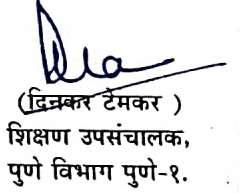 (दिनकर टेमकर )
शिक्षण उपसंचालक,
पुणे विभाग पुणे-१.